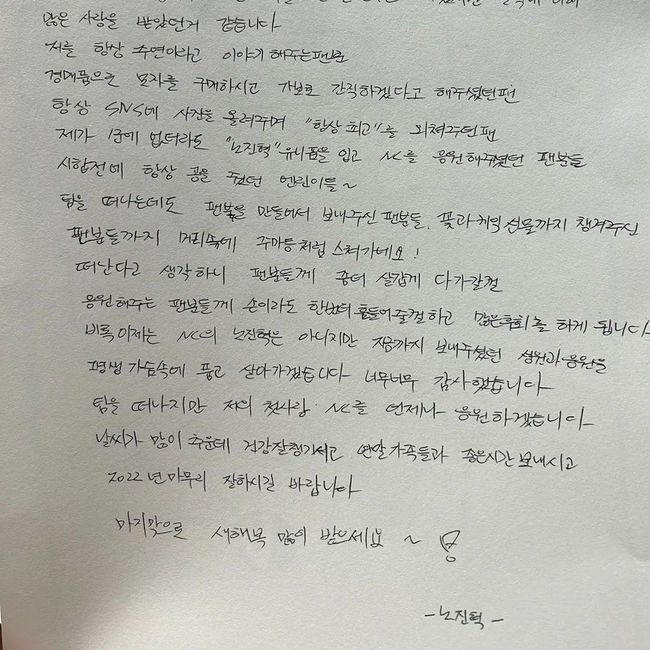 많은 사랑을 받았던거 같습니다
저를 항상 주연이라고 이야기 해주는팬분
경매품으로 모자를 구매하시고 가보로 간직하겠다고 해주셨던팬
항상 SNS에 사진을 올려주며 "항상 최고"를 외쳐주던 팬
제가 1군에 없더라도 "노진혁" 유니폼을 입고 NC를 응원해주셨던 팬분들
시합전에 항상 공을 줬던 엔린이들~
팀을 떠나는데도 팬북을 만들어서 보내주신 팬분들, 꽃과 케익 선물까지 챙겨주신
팬분들까지 머리속에 주마등처럼 스쳐가네요!
떠난다고 생각하니 팬분들께 좀더 살갑게 다가갈걸
응원해주는 팬분들께 손이라도 한번더 흔들어줄걸 하고 많은후회를 하게 됩니다
비록 이제는 NC의 노진혁은 아니지만 지금까지 보내주셨던 성원과 응원을
평생 가슴속에 품고 살아가겠습니다 너무너무 감사했습니다
팀을 떠나지만 저의 첫사랑 NC를 언제나 응원하겠습니다
날씨가 많이 추운데 건강잘챙기시고 연말 가족들과 좋은시간 보내시고
2022년 마무리 잘하시길 바랍니다
마지막으로 새해복 많이 받으세요 ~
-노진혁-